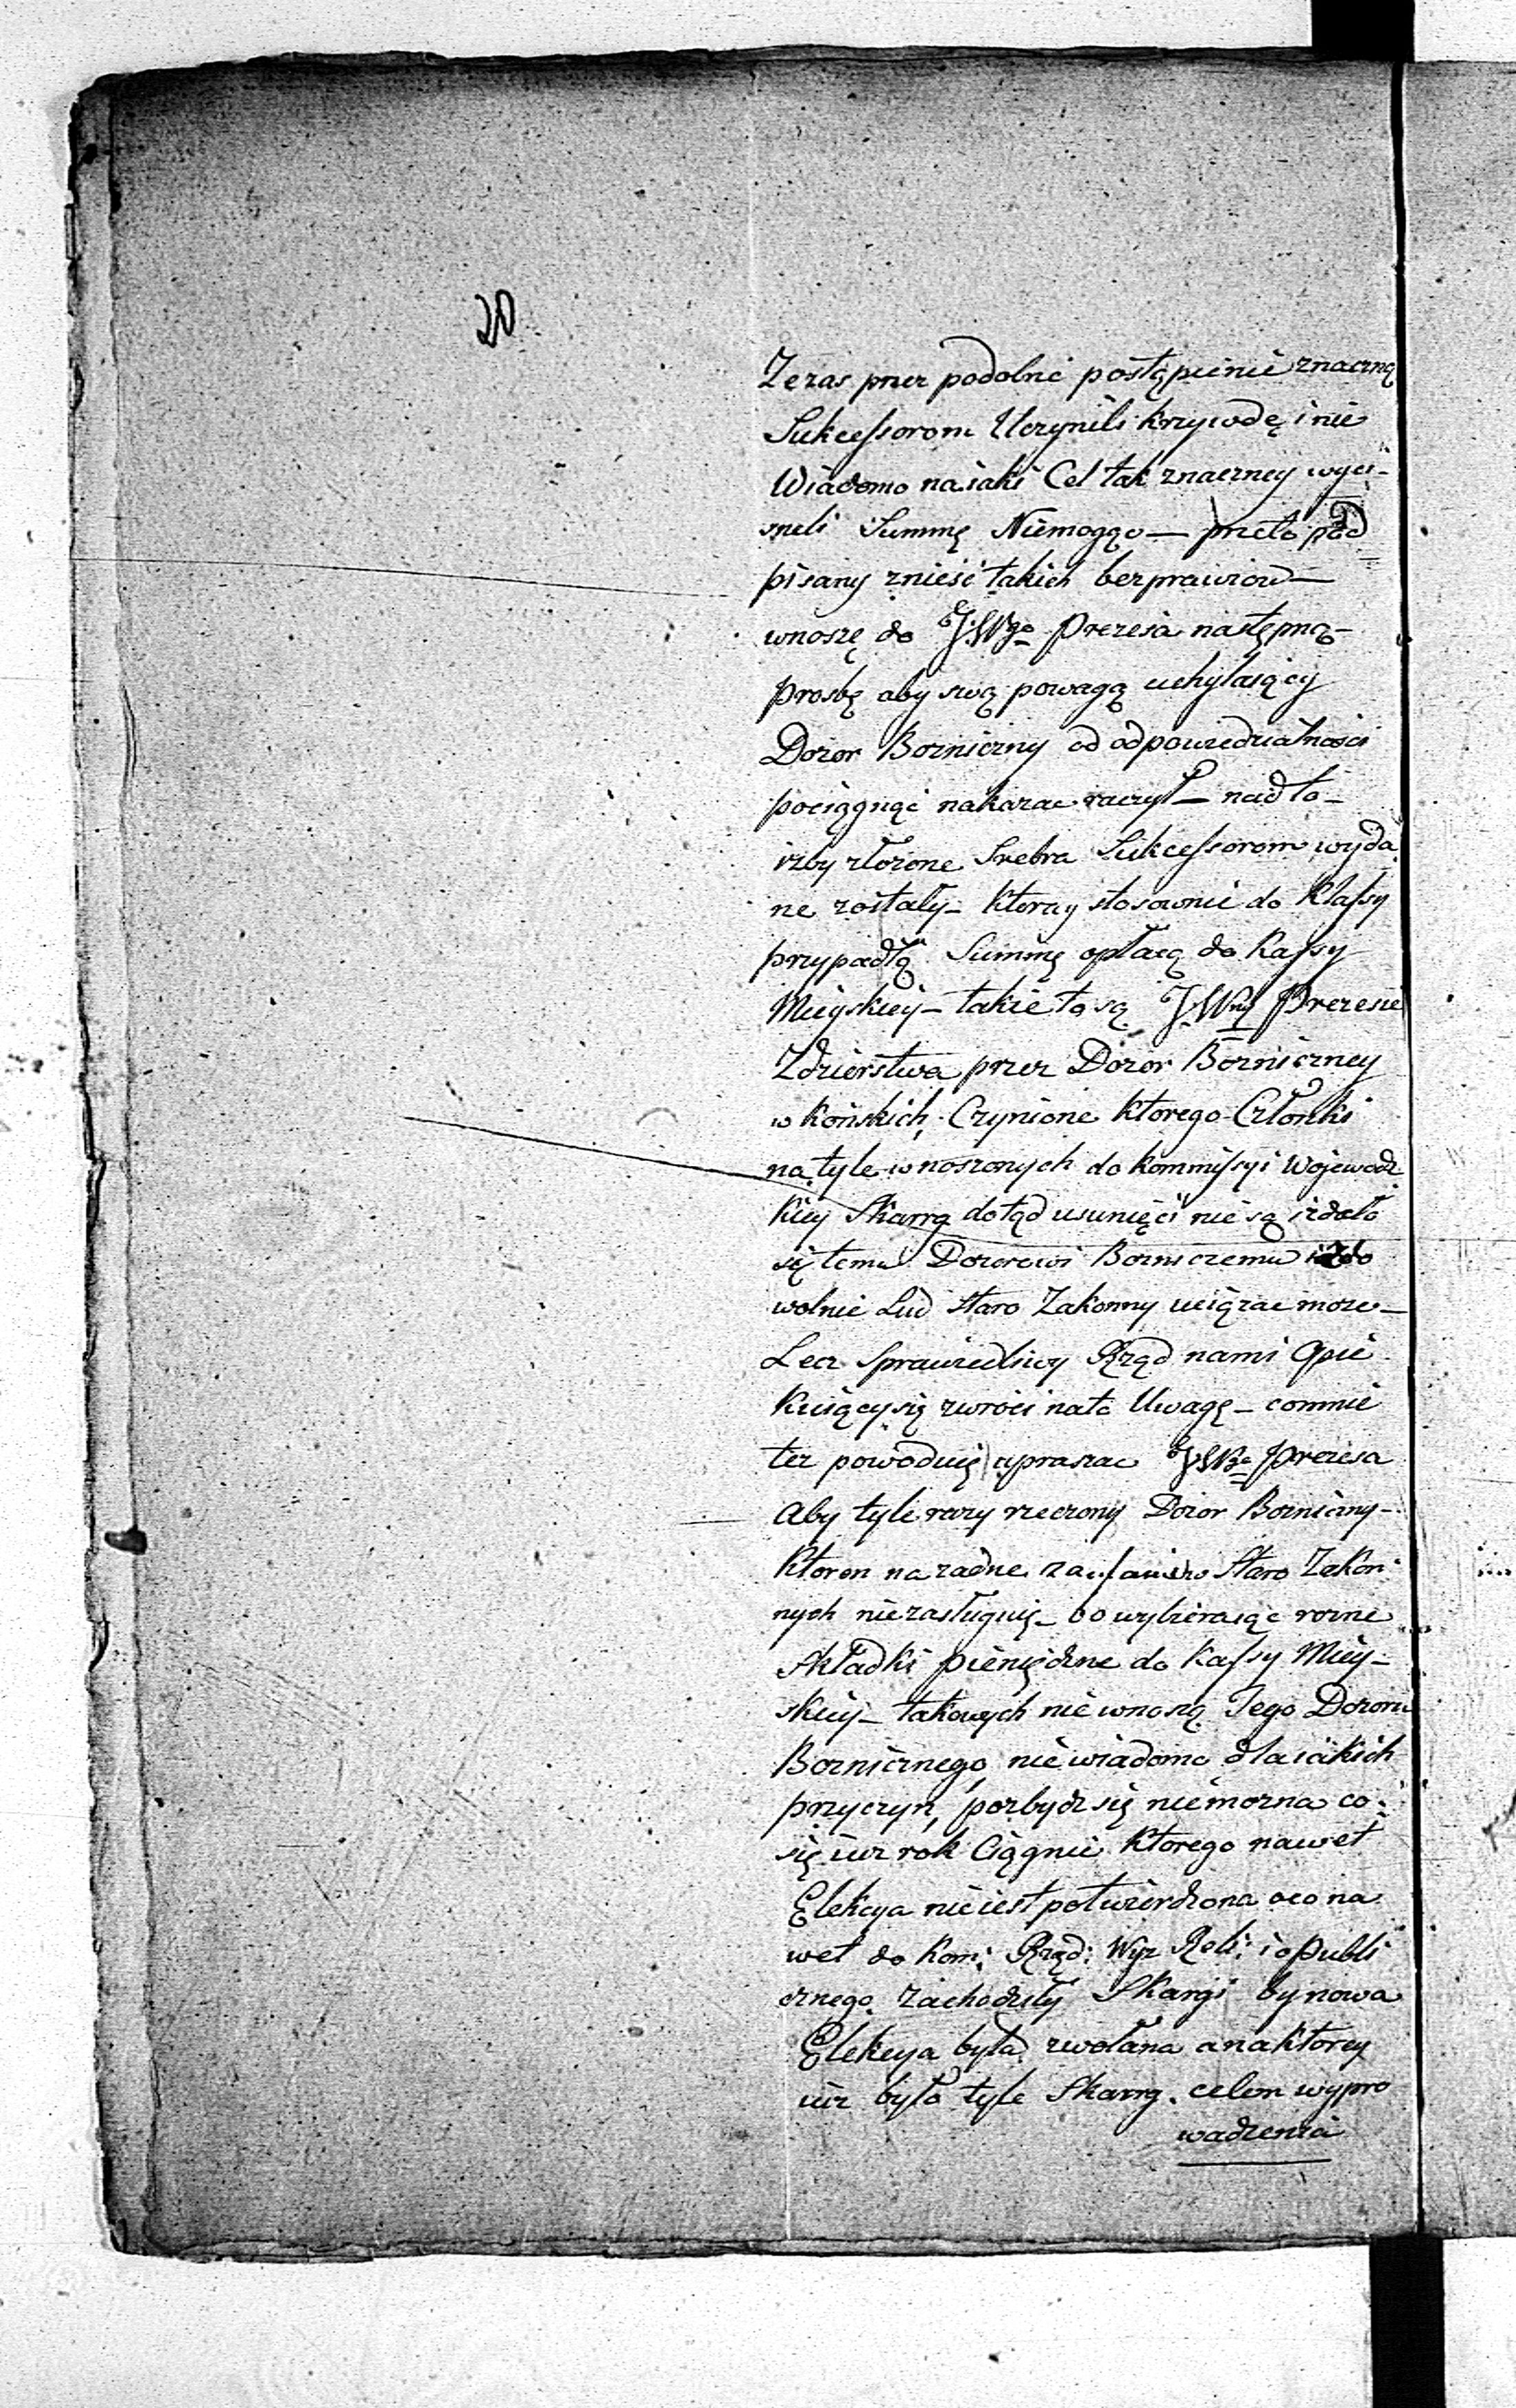 20
Ze zas przez podolne postąpienie znaczną
Sukcessorom Uczynili krzywdę i nie
Wiadomo na iaki Cel tak znaczney wyci-
sneli Summę Niemogąc — przeto pod
pisany znieść takich bezprawiow —
wnoszę do JWgo Prezesa następną —
prosbę aby swą powagą uchylaiący
Dozor Bozniczny od odpowiedzialnosci
pociągnąć nakazac raczył — nadto —
izby złozone Srebra Sukcessorom wyda
ne zostały — ktorzy stosownie do Klassy
przypadłą Summę opłacą do Kassy
Mieyskiey — takie to są JWny Prezesie
Zdzierstwa przez Dozor Bozniczney
w Końskich Czynione ktorego Członki
na tyle wnoszonych do Kommissyi Wojewodz
kiey Skarg dotąd usunięci nie są i zdało
się temu Dozorowi Bozniczemu
wolnie Lud Staro Zakonny uciązac moze —
Lecz Sprawiedliwy Rząd nami Opie
kuiący się zwroci na to Uwagę — co mnie
tez powoduię upraszac JWgo Prezesa
Aby tyle razy rzeczony Dozor Bozniczny —
Ktoren na zadne zaufanie Staro Zakon
nych niezasługuię — bo wybieraiąc rozne
składki pieniężne do Kassy Miey-
skiey — takowych nie wnoszą Tego Dozoru
Bozniczneg niewiadomo dla iakich
przyczyn, pozbydz się niemozna co
się iuz rok Ciągnie ktorego nawet
Elekcya nie iest potwierdzona oco na
wet do Kom: Rząd: Wyz Reli: i o Publi
cznego zachodziły Skargi by nowa
Elekcya była zwołana a na ktorey
iuz było tyle Skarg. celem wypro
wadzenia